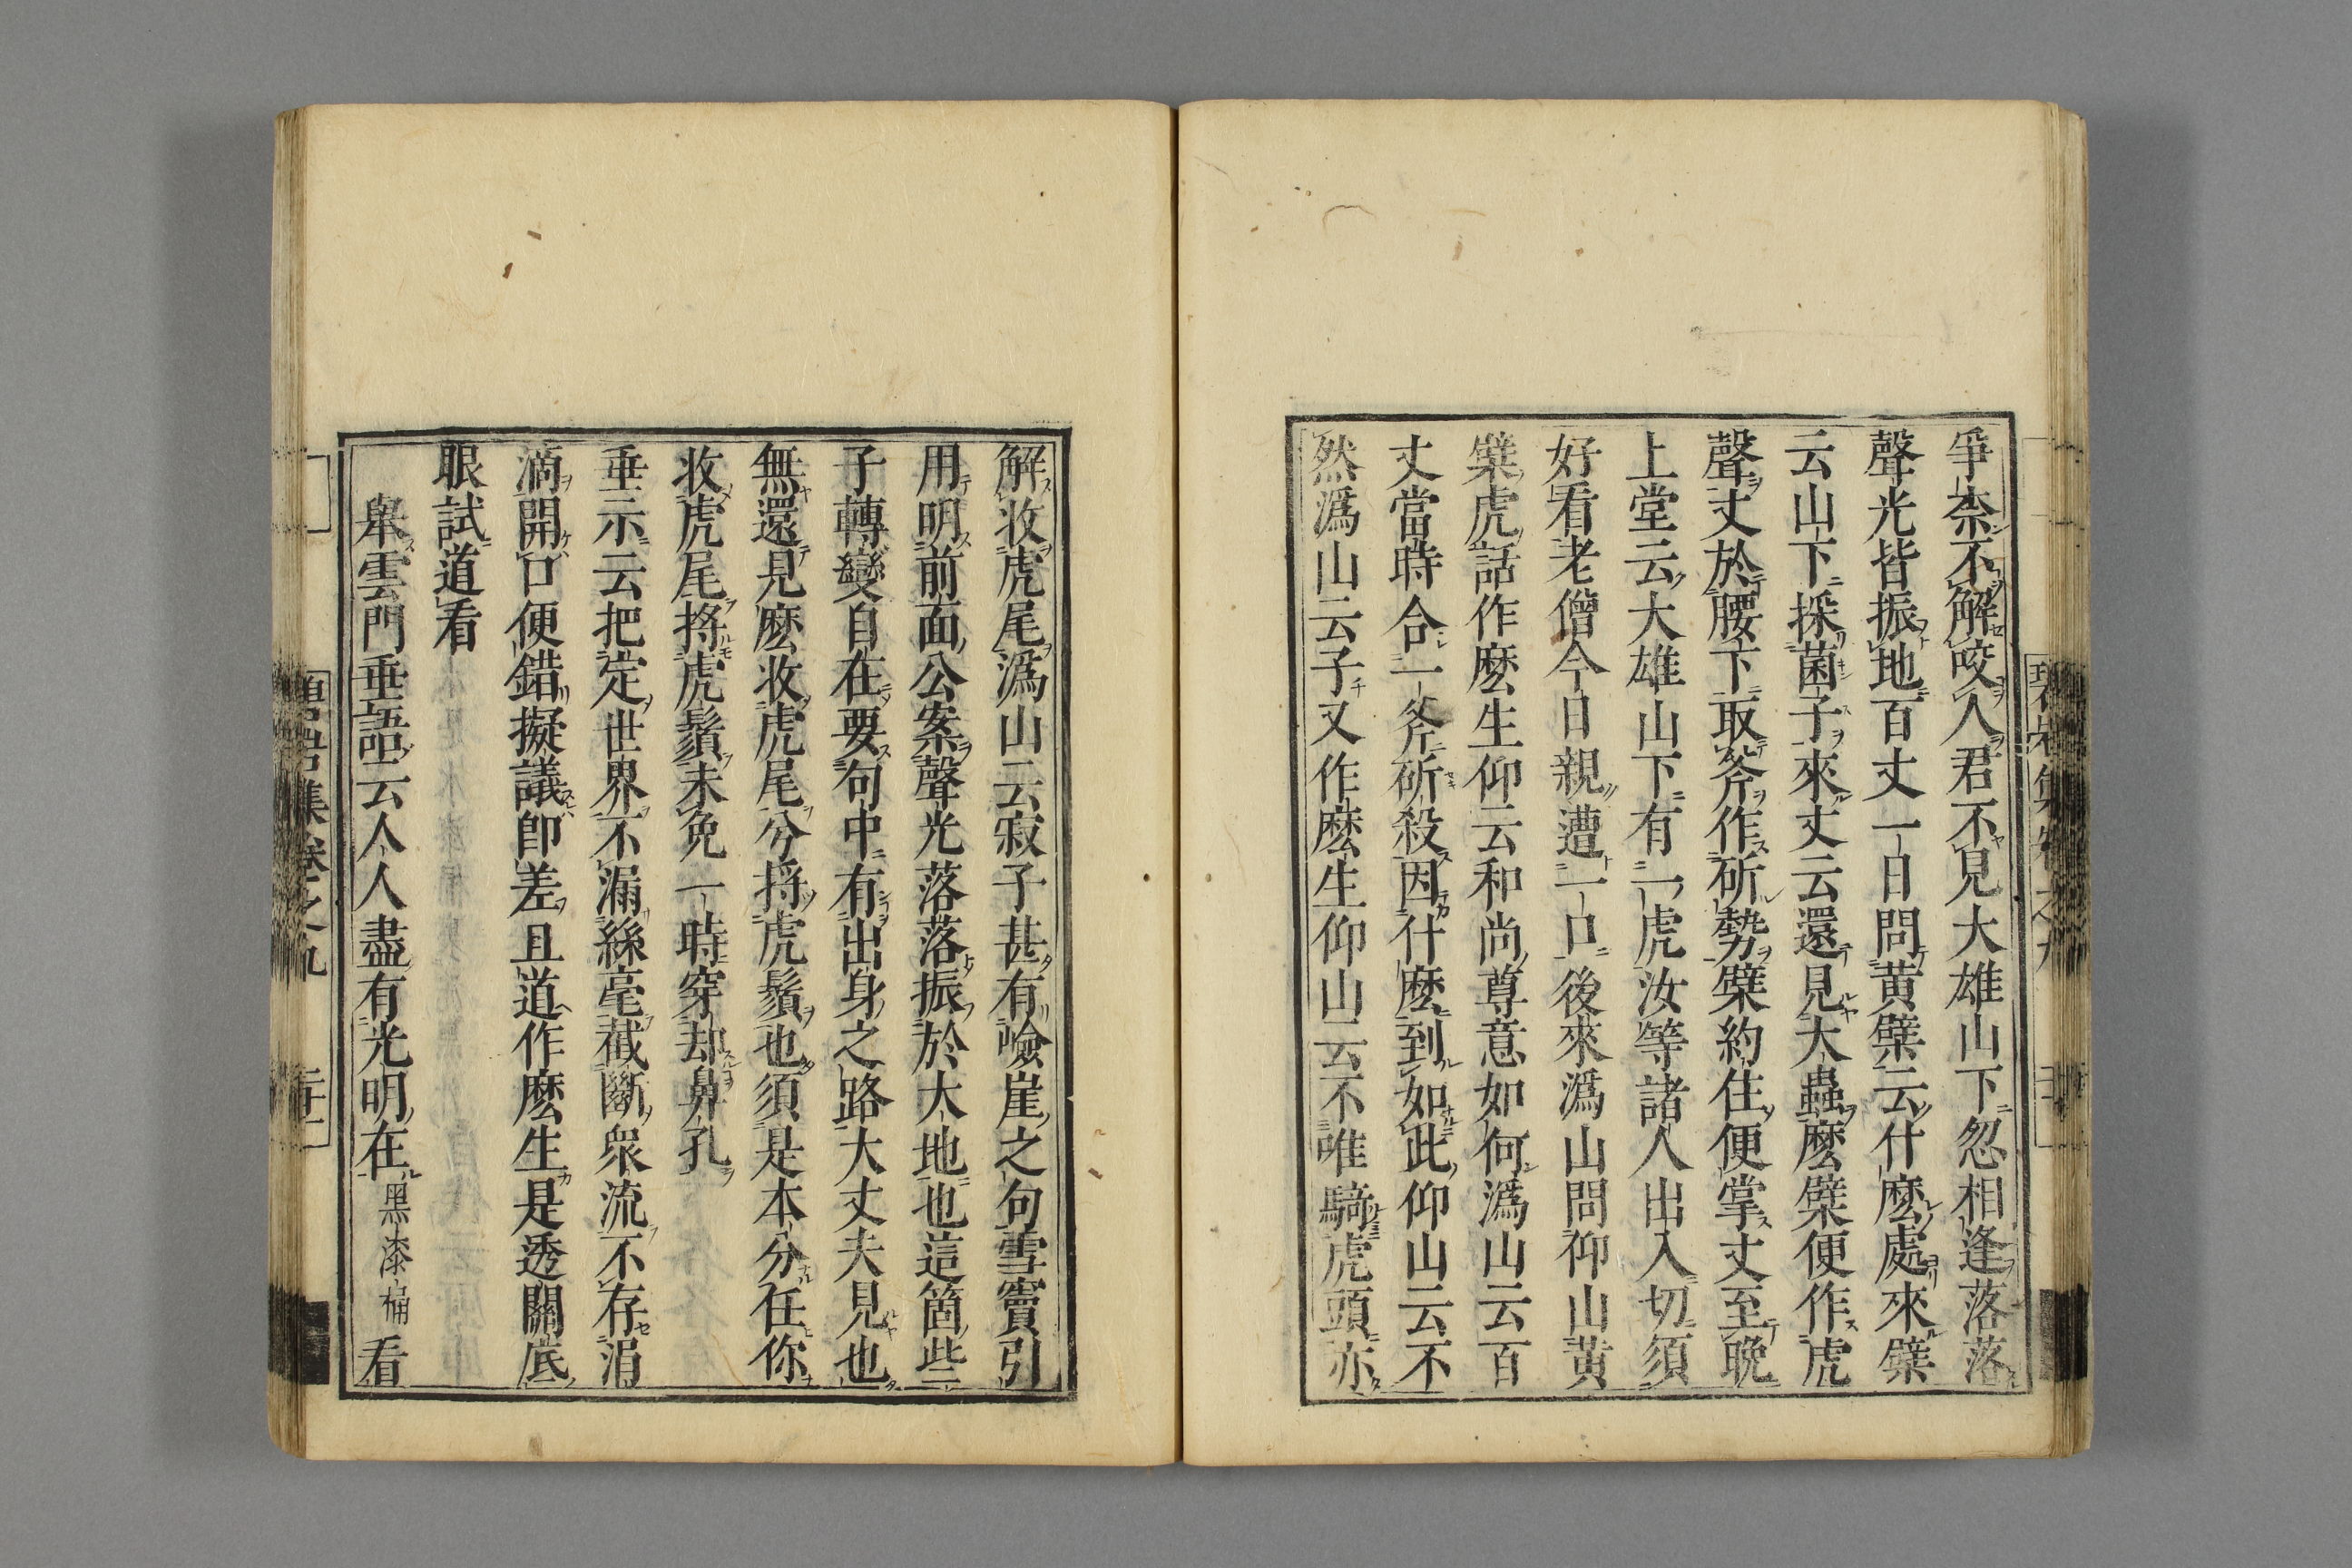 爭柰不解咬人君不見大雄山下忽相逢落落
聲光皆振地百丈一日問黃檗云什麼處來檗
云山下採菌子來丈云還見大蟲麼檗便作虎
聲丈於腰下取斧作斫勢檗約住便掌丈至晚
上堂云大雄山下有一虎汝等諸人出入切須
好看老僧今日親遭一口後來潙山問仰山黃
檗虎話作麼生仰云和尚尊意如何潙山云百
丈當時合一斧斫殺因什麼到如此仰山云不
然潙山云子又作麼生仰山云不唯騎虎頭亦
解收虎尾潙山云寂子甚有嶮崖之句雪竇引
用明前面公案聲光落落振於大地也這箇些
子轉變自在要句中有出身之路大丈夫見也
無還見麼收虎尾兮捋虎鬚也須是本分任你
收虎尾捋虎鬚未免一時穿却鼻孔
垂示云把定世界不漏絲毫截斷衆流不存涓
滴開口便錯擬議卽差且道作麼生是透關底
眼試道看
舉雲門垂語云人人盡有光明在黑漆桶看
碧岩集卷之九